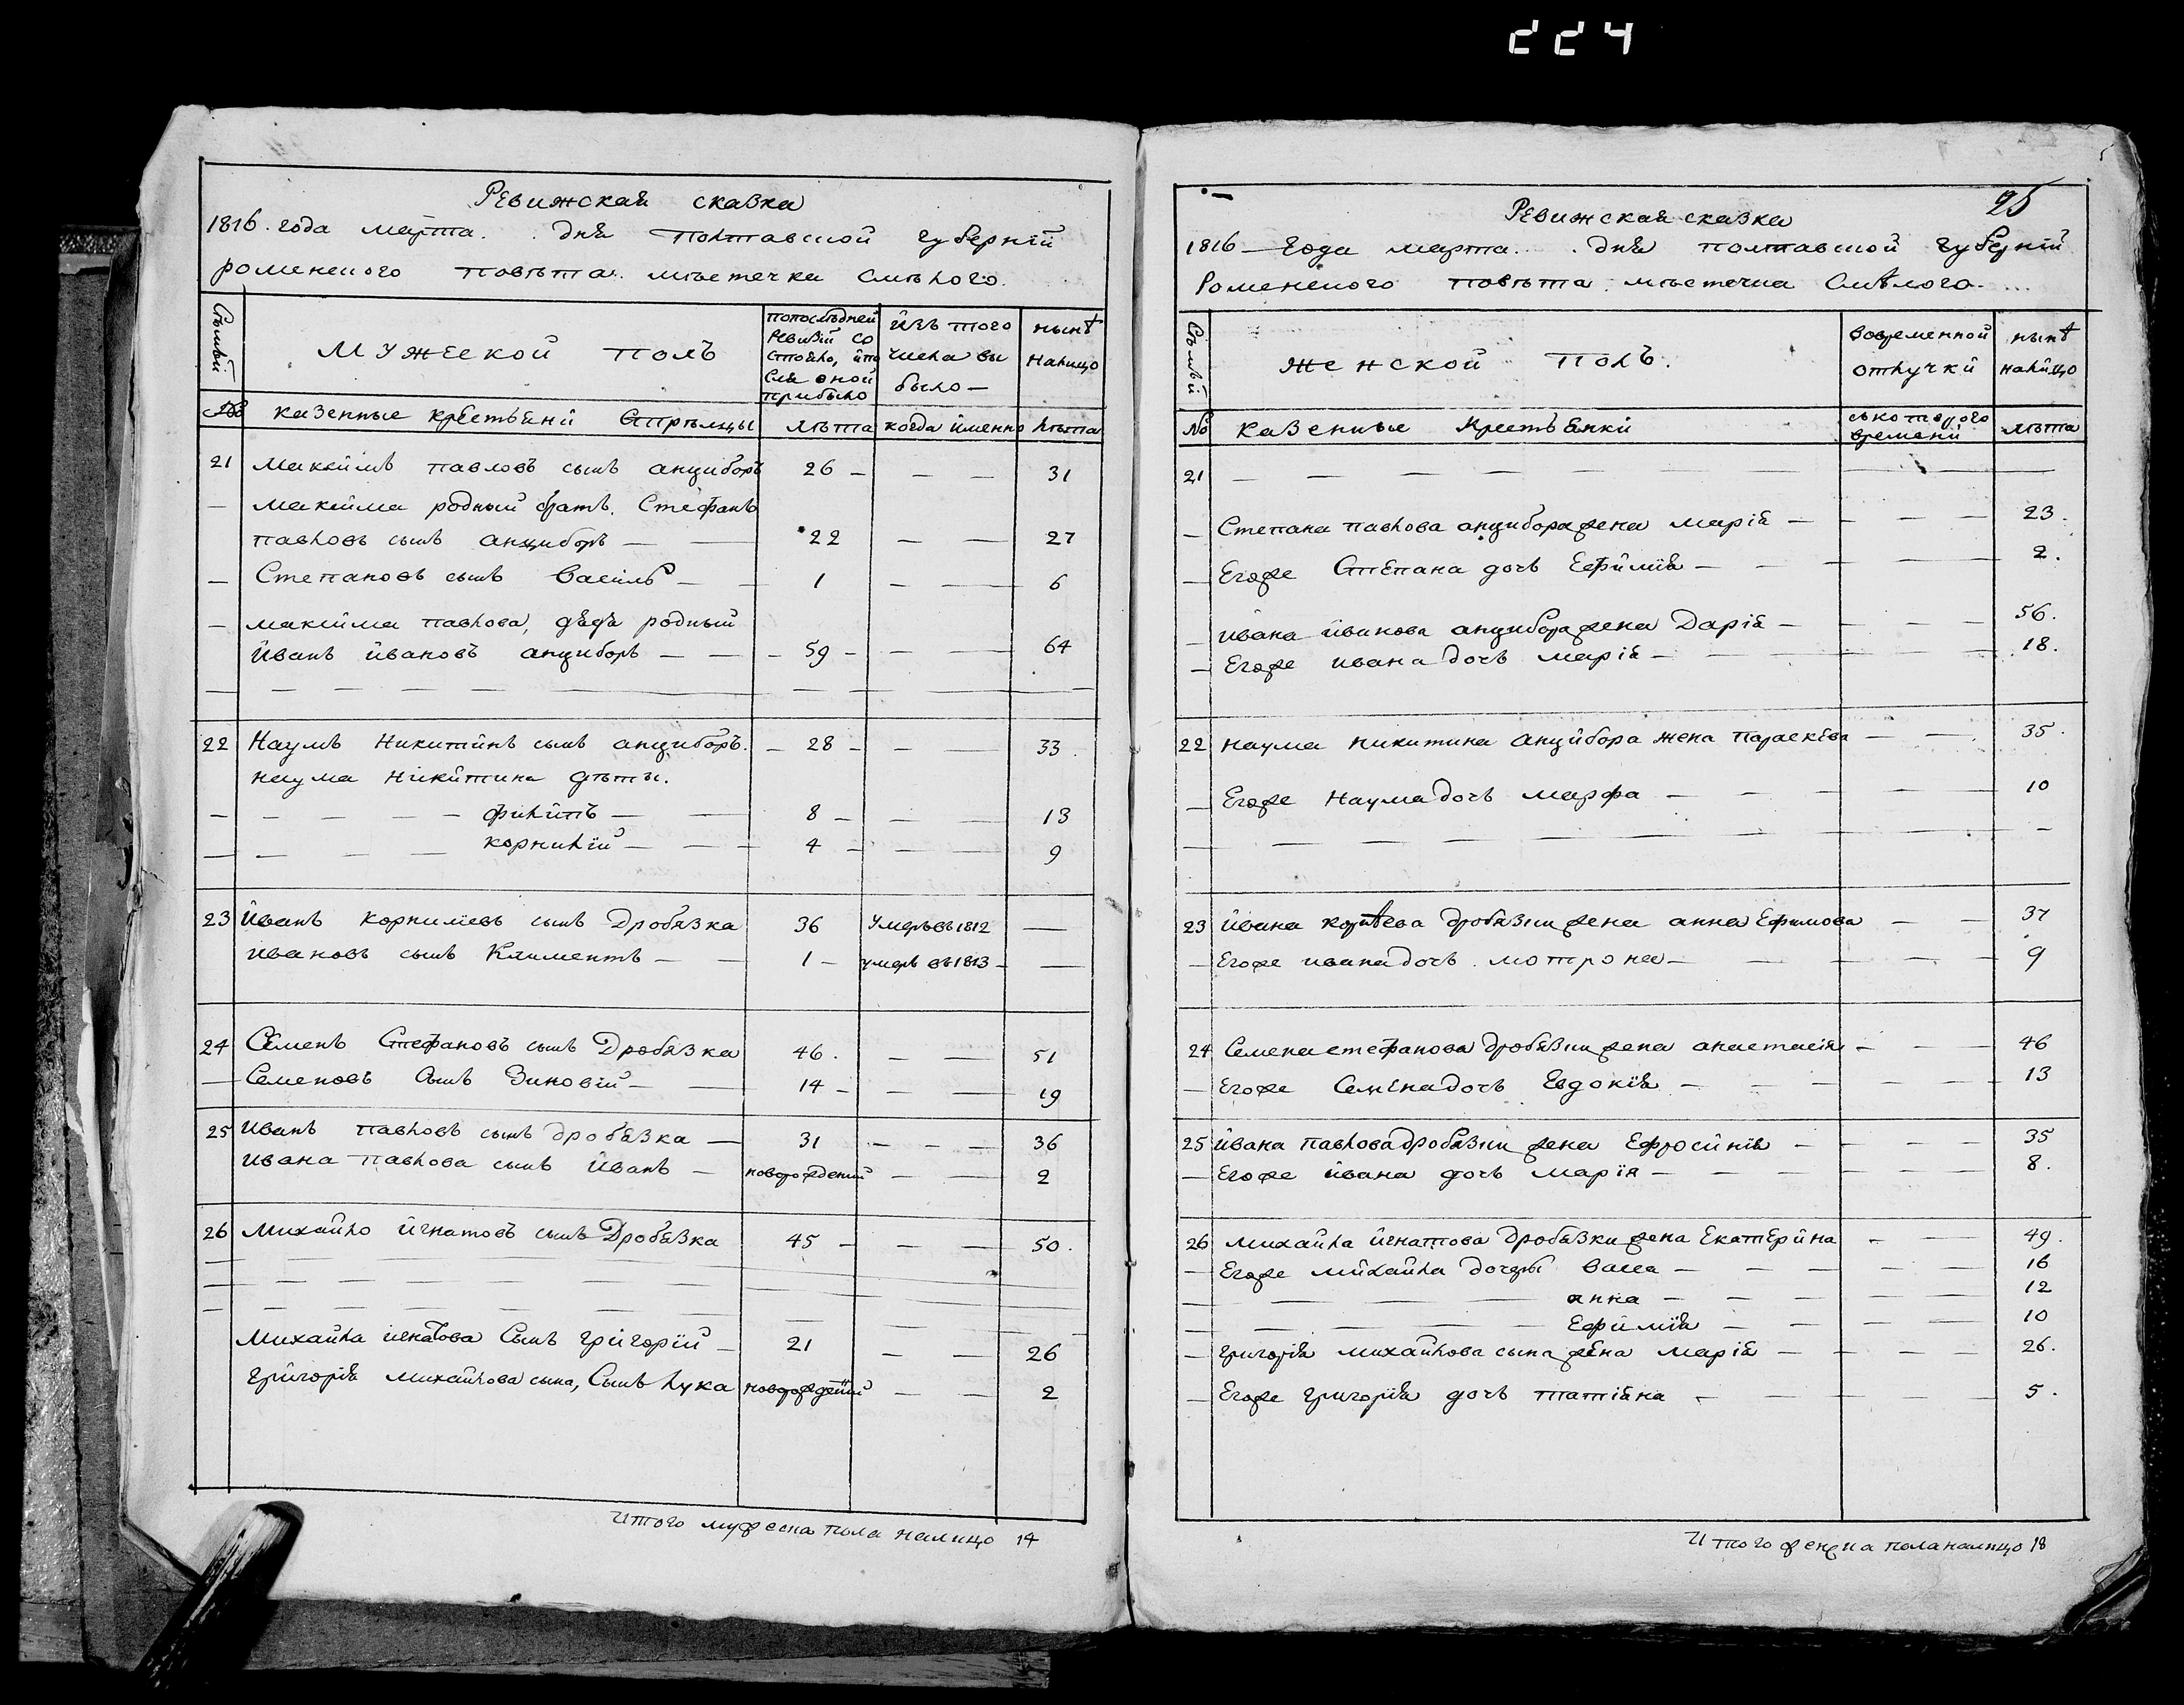 224
Ревижская сказка
1816. года марта. . дня полтавской губернїй
роменского повѣта. мѣстечка смѣлого.
Сѣмьи
мужеской полъ
попослѣдней ревизїй состояло, ипосля оной прибыло
йзъ того числа выбыло —
нынѣ налицо
№ казенные крестьяни Стрѣлцы лѣта когда именно лѣта
21 макси́мъ павловъ сынъ анциборъ 26 — — — 31
— максима родный братъ. Стефанъ
павловъ сынъ анциборъ — — 22 — — 27
— Степановъ сынъ Василь — — 1 — — 6
— максима павлова, дядя родный
Иванъ йвановъ анциборъ — — — 59 — — — 64
22 Наумъ Никитинъ сынъ анциборъ. — 28 — — — 33.
наума Никитина дѣты.
— — — — — филипъ — — 8 — — — 13
— — — — корнилїй — — — 4 — — — 9
23 Йванъ корнилїевъ сынъ Дробязка 36 Умеръ въ 1812 —
йвановъ сынъ Климентъ — — 1 — умеръ въ 1813 — —
24 Семенъ Стефановъ сынъ Дробязка 46. — — 51
— Семеновъ Сынъ Зиновїй — — 14 — — — 19
25 Иванъ павловъ сынъ дробязка — 31 — — — 36
ивана павлова сынъ Иванъ — новорожденный — — 2
26 Михайло йгнатовъ сынъ Дробязка 45 — — — 50.
Михайла игнатова Сынъ григорїй — 21 — — 26
григорїя михайлова сына, Сынъ лука новорожденный — — 2
Итого мужеска пола налицо 14
25
Ревижская сказка
1816 — года марта. . дня полтавской губернїй
Роменского повѣта. мѣстечка Смѣлого. . . .
Сѣмьи
женской полъ.
вовременной отлучки
нынѣ налицо
№ казенные крестьянки съ котораго времени лѣта
21 — — — — — — —
— Степана павлова анцибора жена марїя — — — — 23.
— Егоже Степана дочь Ефимїя — — — — 2.
— ивана йванова анцибора жена Дарїя — — — — 56.
— Егоже ивана дочь марїя — — — — 18.
22 наума никитина анцибора жена параскева — — 35.
— Егоже наума дочь марфа — — — — 10
23 йвана корнѣева дробязки жена анна Ефимова — — 37
— Егоже ивана дочь мотрона — — — — 9
24 Семена стефанова дробязки жена анастасїя — — — 46
— Егоже Семена дочь Евдокїя — — — — 13
25 йвана павлова дробязки жена Ефросинїя — — — — 35
— Егоже йвана дочь марїя — — — — 8.
26 михайла йгнатова дробязки жена Екатерина — — — 49.
— Егоже михайла дочеры васса — — — — 16
— — — — анна — — — — 12
— — — — Ефимїя — — — — 10
— григорїя михайлова сына жена марїя — — — — 26.
— Егоже григорїя дочь татїяна — — — — 5.
Итого женска пола налицо 18